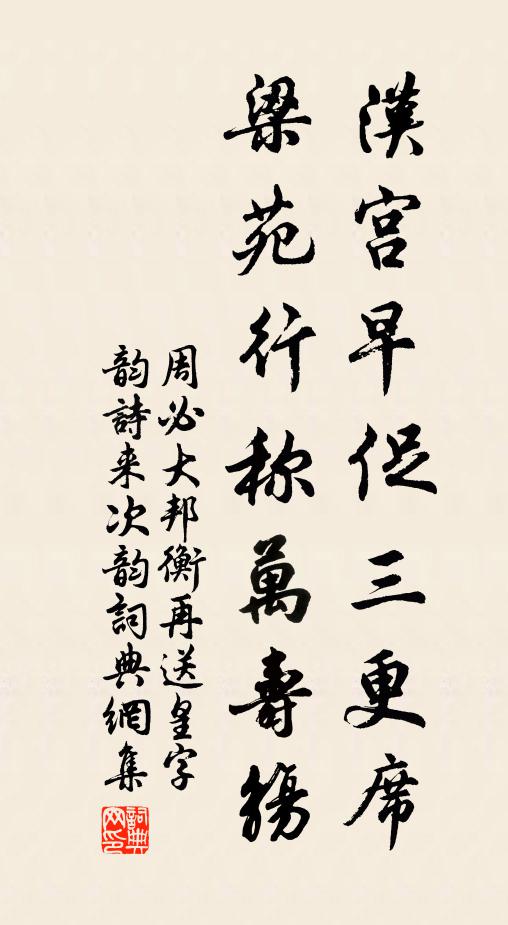 漢宮早促三更席
梁苑行称萬壽觴
周必大邦衡再送皇字
韵詩来次韵詞典網集
詞典网印